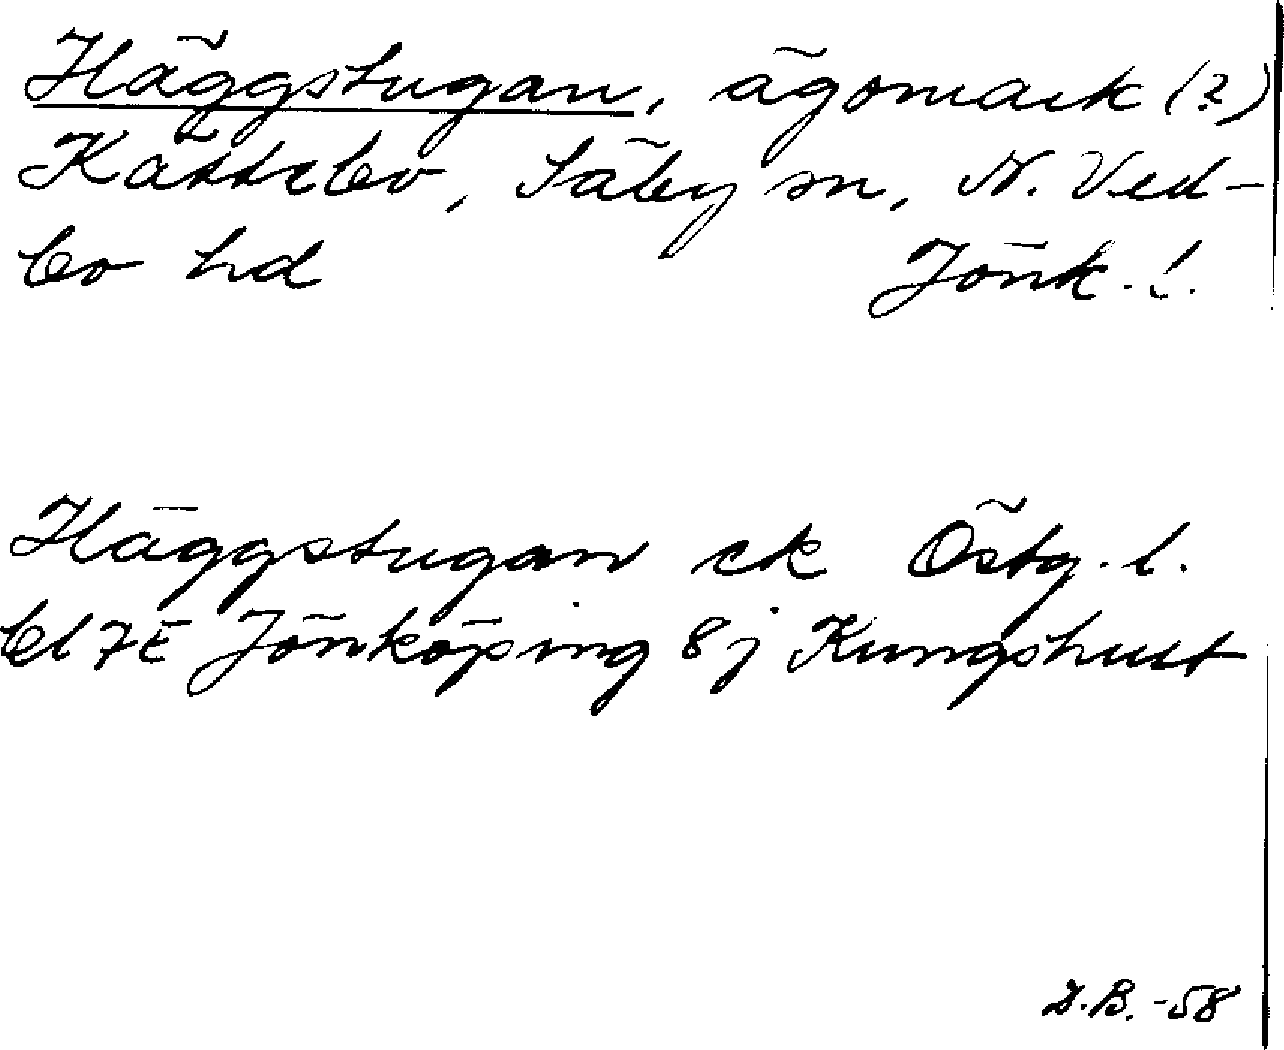 Häggstugan, ägomark (?)
Kättebo, Säby sn, N. Ved-
bo hd Jönk. l.
Häggstugan ek Östg. l.
bl 7E Jönköping 8j Kungshult
D.B. -58